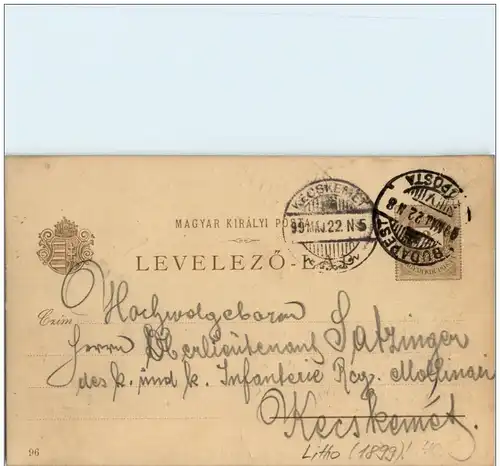 MAGYAR KIRÁLYI POSTA
LEVELEZŐ-
KECSKEMÉT
99 MÁJ 22 N 5
BUDAPEST
MÁJ 22 N 8
POSTA
Czim:
Hochwolgeboren
Herrn Oberlieutenant Satzinger
des k. und k. Infanterie Reg.
Kecskemét.
96
Litho (1899)!